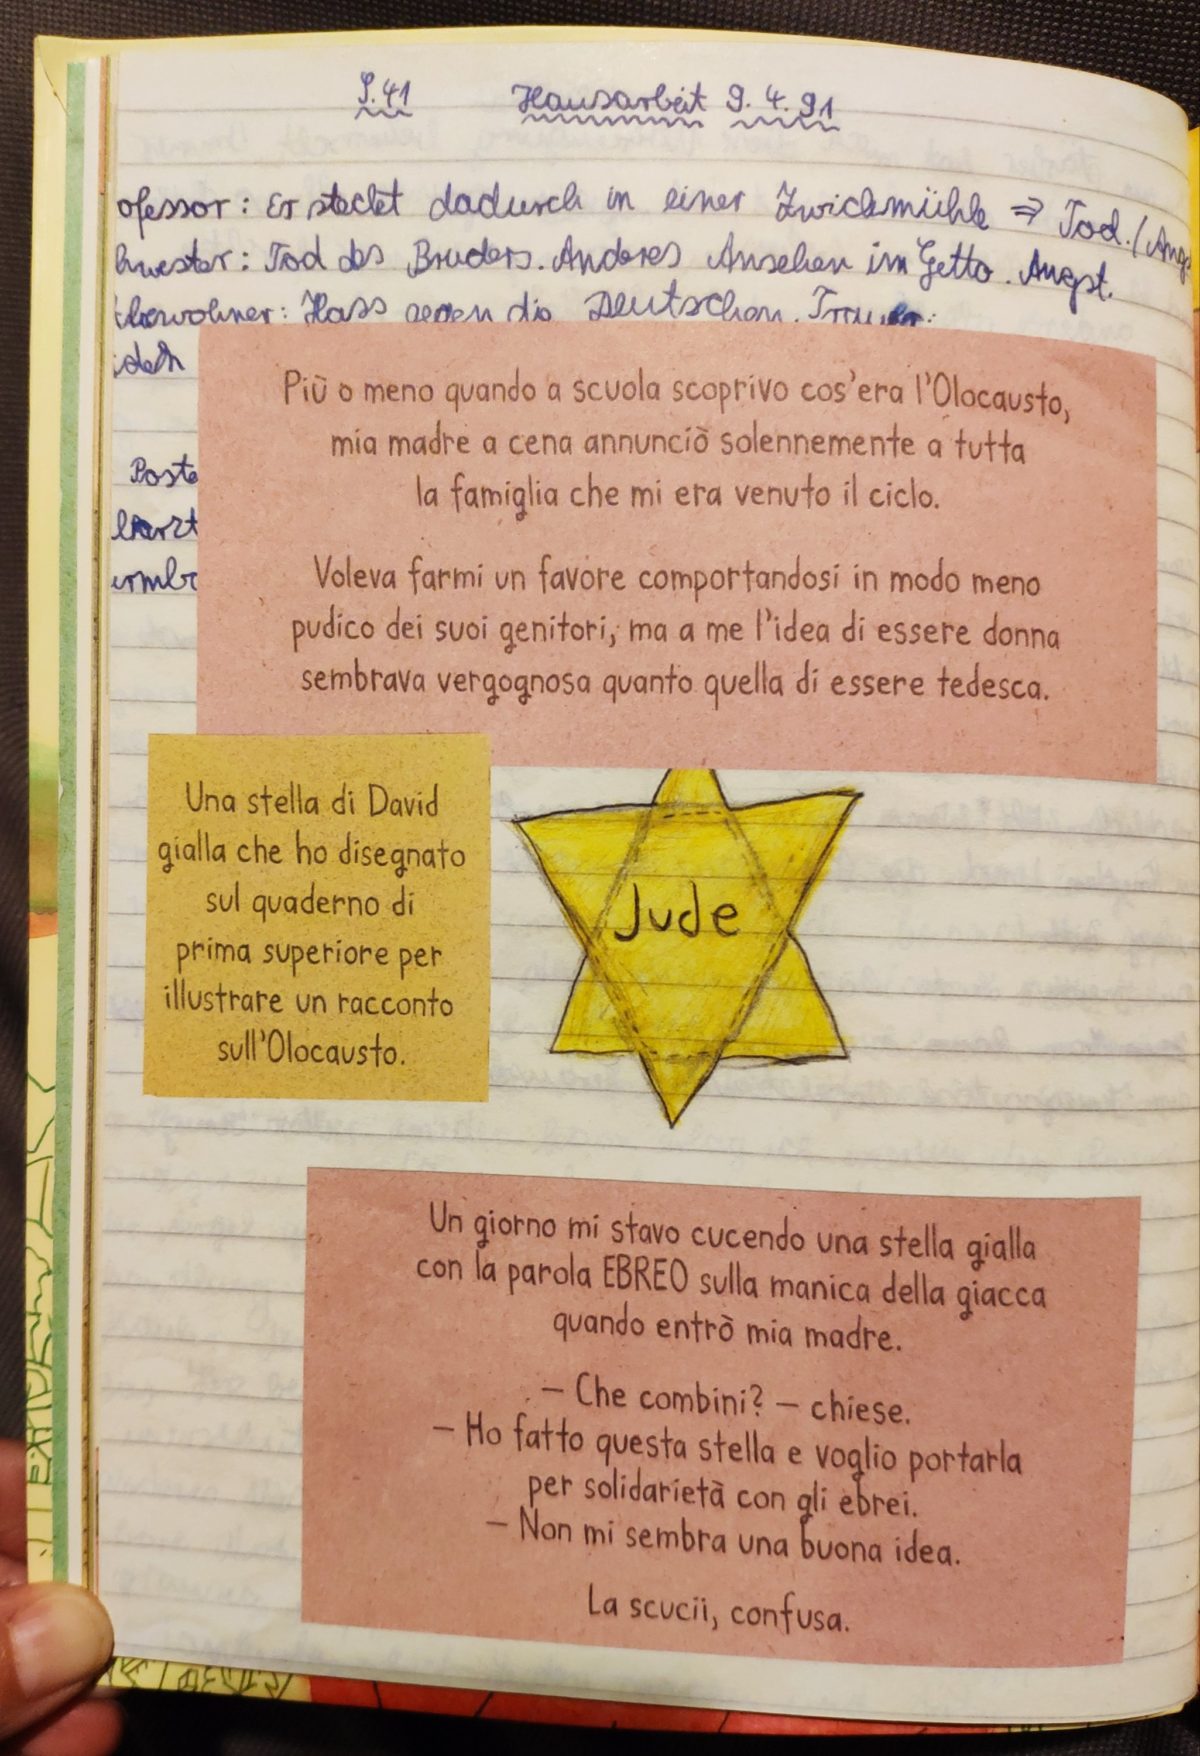 S.41 Hausarbeit 9.4.91
ofessor: Er steckt dadurch in einer Zwickmühle ⇒ Tod./Ang
hwester: Tod des Bruders. Anderes Ansehen im Getto. Angst.
bewohner: Hass gegen die Deutschen. Trauer.
Più o meno quando a scuola scoprivo cos'era l'Olocausto,
mia madre a cena annunciò solennemente a tutta
la famiglia che mi era venuto il ciclo.
Voleva farmi un favore comportandosi in modo meno
pudico dei suoi genitori, ma a me l'idea di essere donna
sembrava vergognosa quanto quella di essere tedesca.
Poste
Una stella di David
gialla che ho disegnato
sul quaderno di
prima superiore per
illustrare un racconto
sull'Olocausto.
Jude
Un giorno mi stavo cucendo una stella gialla
con la parola EBREO sulla manica della giacca
quando entrò mia madre.
– Che combini? – chiese.
– Ho fatto questa stella e voglio portarla
per solidarietà con gli ebrei.
– Non mi sembra una buona idea.
La scucii, confusa.